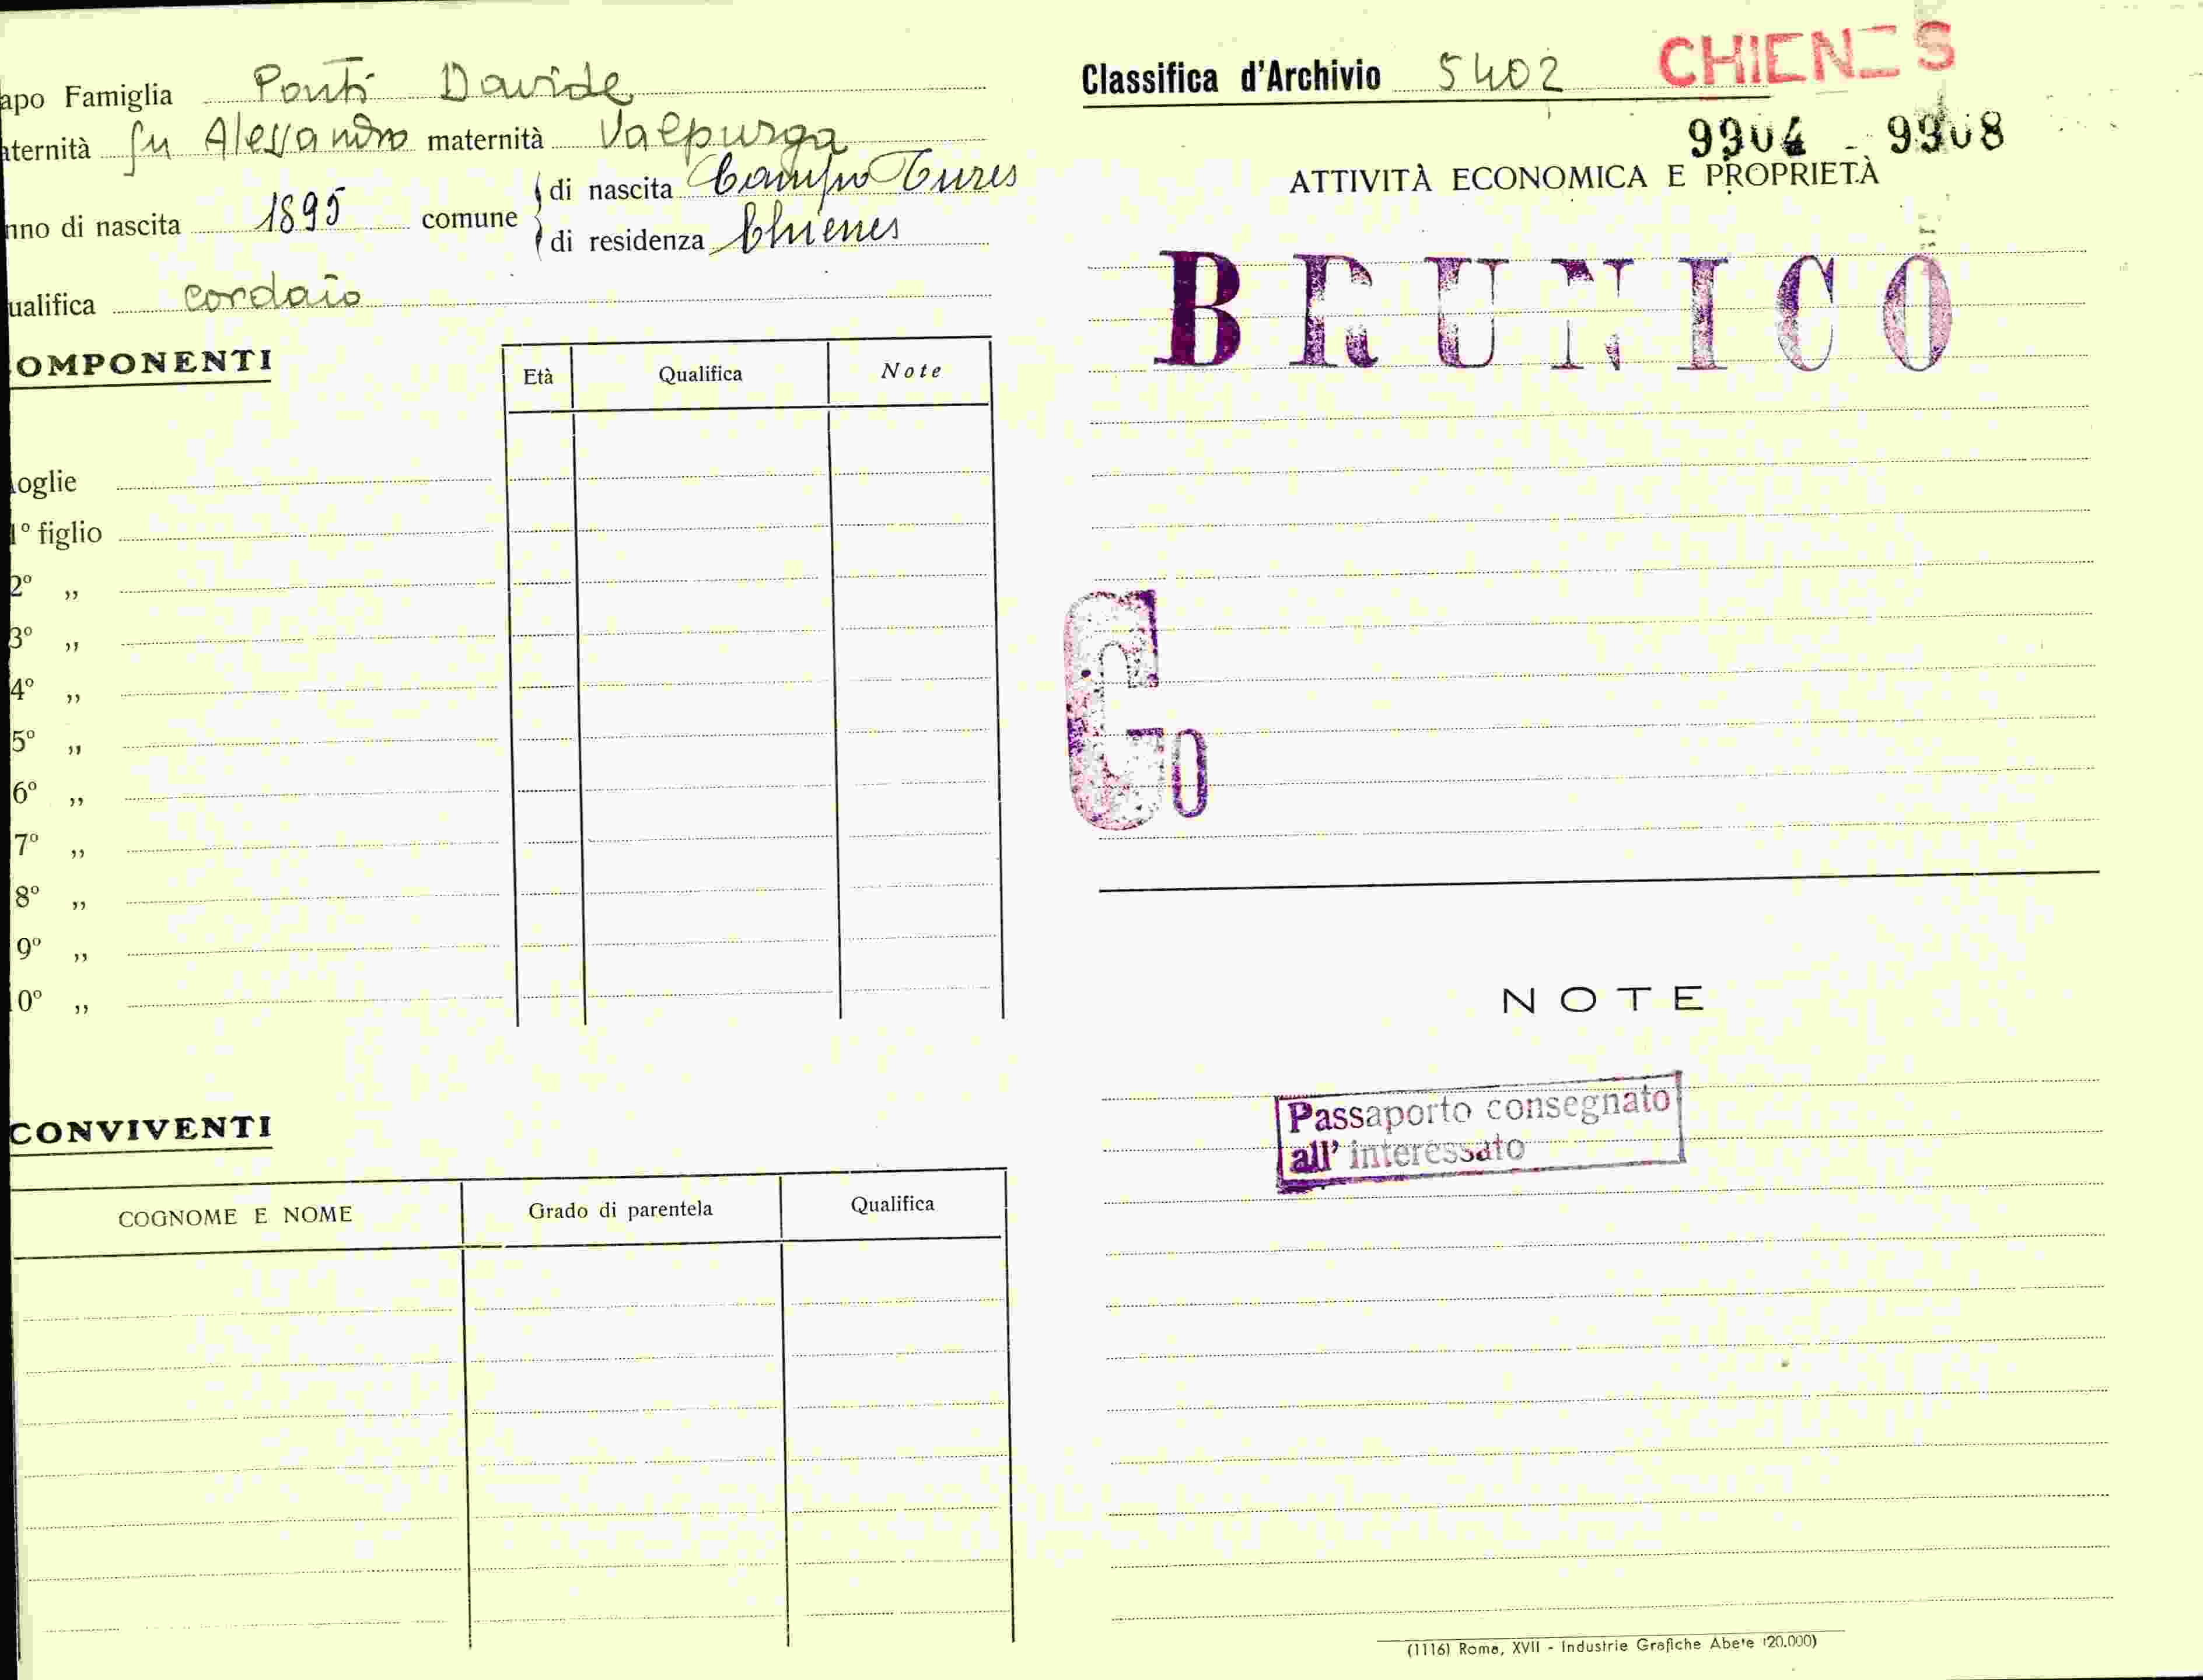 apo Famiglia Ponti Davide
aternità fu Alessandro maternità Valpurga
nno di nascita 1895 comune di nascita Campo Tures
di residenza Chienes
ualifica cordaio
OMPONENTI
Età Qualifica Note
oglie
1° figlio
2° „
3° „
4° „
5° „
6° „
7° „
8° „
9° „
0° „
CONVIVENTI
COGNOME E NOME Grado di parentela Qualifica
Classifica d'Archivio 5402 CHIENES
9904 - 9908
ATTIVITÀ ECONOMICA E PROPRIETÀ
BRUNICO
G0
NOTE
Passaporto consegnato
all' interessato
(1116) Roma, XVII - Industrie Grafiche Abete (20.000)